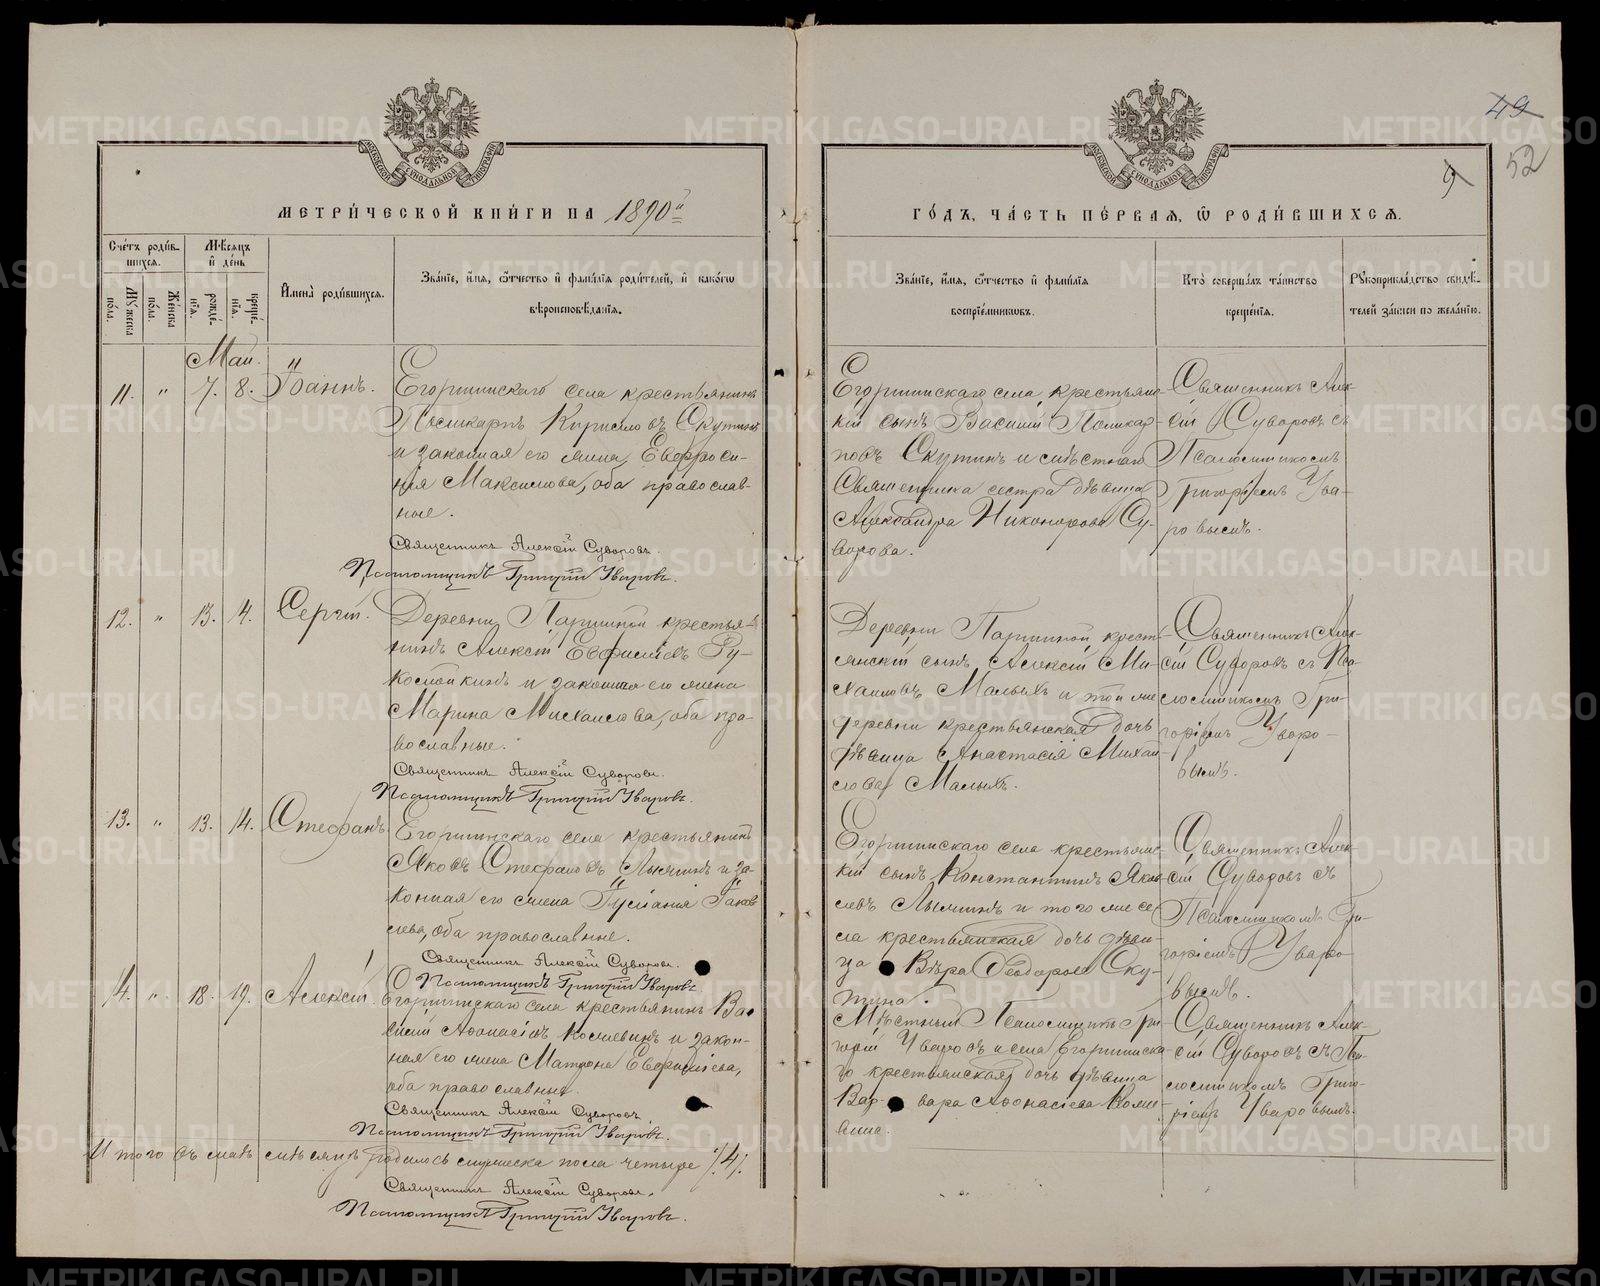 49
9
52
МЕТРИ́ЧЕСКОЙ КНИ́ГИ НА 1890й
ГО́ДЪ, ЧА́СТЬ ПЕ́РВАЯ, Ѡ РОДИ́ВШИХСЯ.
Сче́тъ роди́вшихся.
Мꙋ́жеска по́ла.
Же́нска по́ла.
Мѣ́сяцъ и҆ де́нь
рожде́нїя.
креще́нїя.
И҆мена̀ роди́вшихся.
Зва́нїе, и҆́мя, ѻ҆́тчество и҆ фами́лїя роди́телей, и҆ како́гѡ
вѣроисповѣ́данїя.
Зва́нїе, и҆́мя, ѻ҆́тчество и҆ фами́лїя
воспрїе́мникѡвъ.
Кто̀ соверша́лъ та́инство
креще́нїя.
Рꙋкоприкла́дство свидѣ́-
телей за́писи по жела́нїю.
Май.
11. " 7. 8. Іоаннъ.
Егоршинскаго села крестьянинъ
Поликарпъ Кириловъ Скутинъ
и законная его жена Евфроси-
нія Максимова, оба православ-
ные.
Священникъ Алексій Суворовъ.
Псаломщикъ Григорій Уваровъ.
Егоршинскаго села, крестьянс-
кій сынъ Василій Поликар-
повъ Скутинъ и мѣстнаго
Священника сестра дѣвица
Александра Никонорова Су-
ворова.
Священникъ Алек-
сій Суворовъ съ
Псаломщикомъ
Григоріемъ Ува-
ровымъ.
12. " 13. 14. Сергій.
Деревни Паршиной крестья-
нинъ Алексій Евфиміевъ Ру-
косуйкинъ и законная его жена
Марина Михаилова, оба пра-
вославные.
Священникъ Алексій Суворовъ.
Псаломщикъ Григорій Уваровъ.
Деревни Паршиной, кресть-
янскій сынъ Алексій Ми-
хаиловъ Малыхъ и той же
деревни крестьянская дочь
дѣвица Анастасія Михаи-
лова Малыхъ.
Священникъ Алек-
сій Суворовъ съ Пса-
ломщикомъ Гри-
горіемъ Уваро-
вымъ.
13. " 13. 14. Стефанъ.
Егоршинскаго села крестьянинъ
Яковъ Стефановъ Лычинъ и за-
конная его жена Іуліанія Іаков-
лева, оба православные.
Священникъ Алексій Суворовъ.
Псаломщикъ Григорій Уваровъ.
Егоршинскаго села крестьянс-
кій сынъ Константинъ Яков-
левъ Лычинъ и того же се-
ла крестьянская дочь дѣви-
ца Вѣра Ѳеодорова Ску-
тина.
Священникъ Алек-
сій Суворовъ съ
Псаломщикомъ Гри-
горіемъ Уваро-
вымъ.
14. " 18. 19. Алексій.
Егоршинскаго села крестьянинъ Ва-
силій Аѳонасіевъ и закон-
ная его жена Матрона Евфиміева,
оба православные.
Священникъ Алексій Суворовъ.
Псаломщикъ Григорій Уваровъ.
Мѣстный Псаломщикъ Гри-
горій Уваровъ и села Егоршинска-
го крестьянская дочь дѣвица
Варвара Аѳонасіева
Священникъ Алек-
сій Суворовъ съ Пса-
ломщикомъ Григо-
ріемъ Уваровымъ.
Итого въ маѣ мѣсяцѣ родилось мужеска пола четыре /4/.
Священникъ Алексій Суворовъ.
Псаломщикъ Григорій Уваровъ.